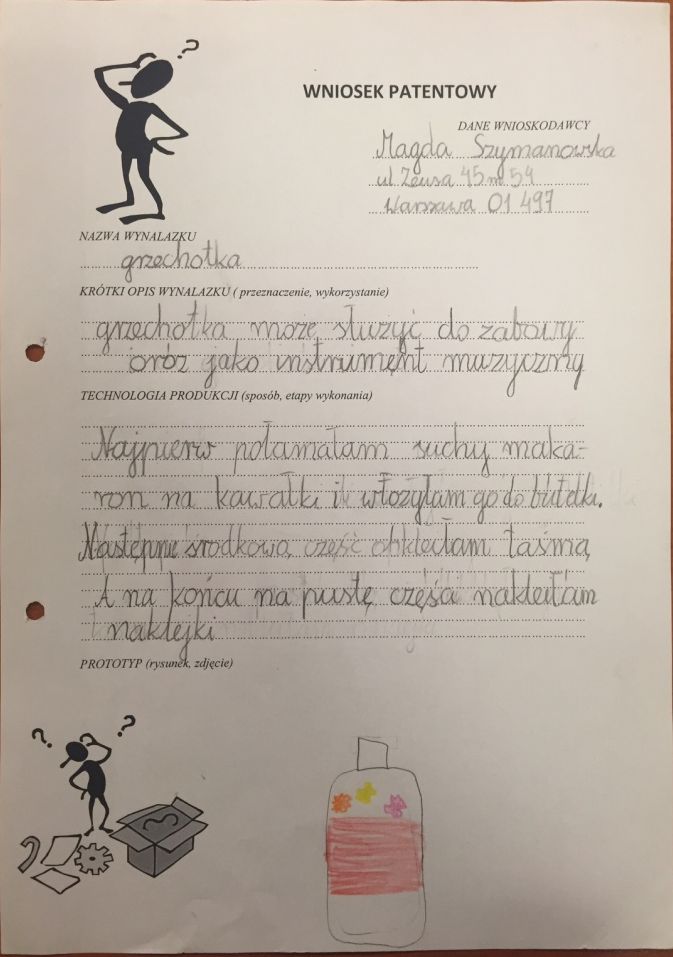 WNIOSEK PATENTOWY
DANE WNIOSKODAWCY
Magda Szymanowska
ul Zeusa 45 m 54
Warszawa 01 497
NAZWA WYNALAZKU
grzechotka
KRÓTKI OPIS WYNALAZKU ( przeznaczenie, wykorzystanie)
grzechotka może służyć do zabawy
oróz jako instrumęnt muzyczny
TECHNOLOGIA PRODUKCJI (sposób, etapy wykonania)
Najpierw połamałam suchy maka-
ron na kawałki i włożyłam go do butelki.
Następnie środkową część obkleiłam taśmą
A na końcu na pustę częśća nakleiłam
naklejki
PROTOTYP (rysunek, zdjęcie)